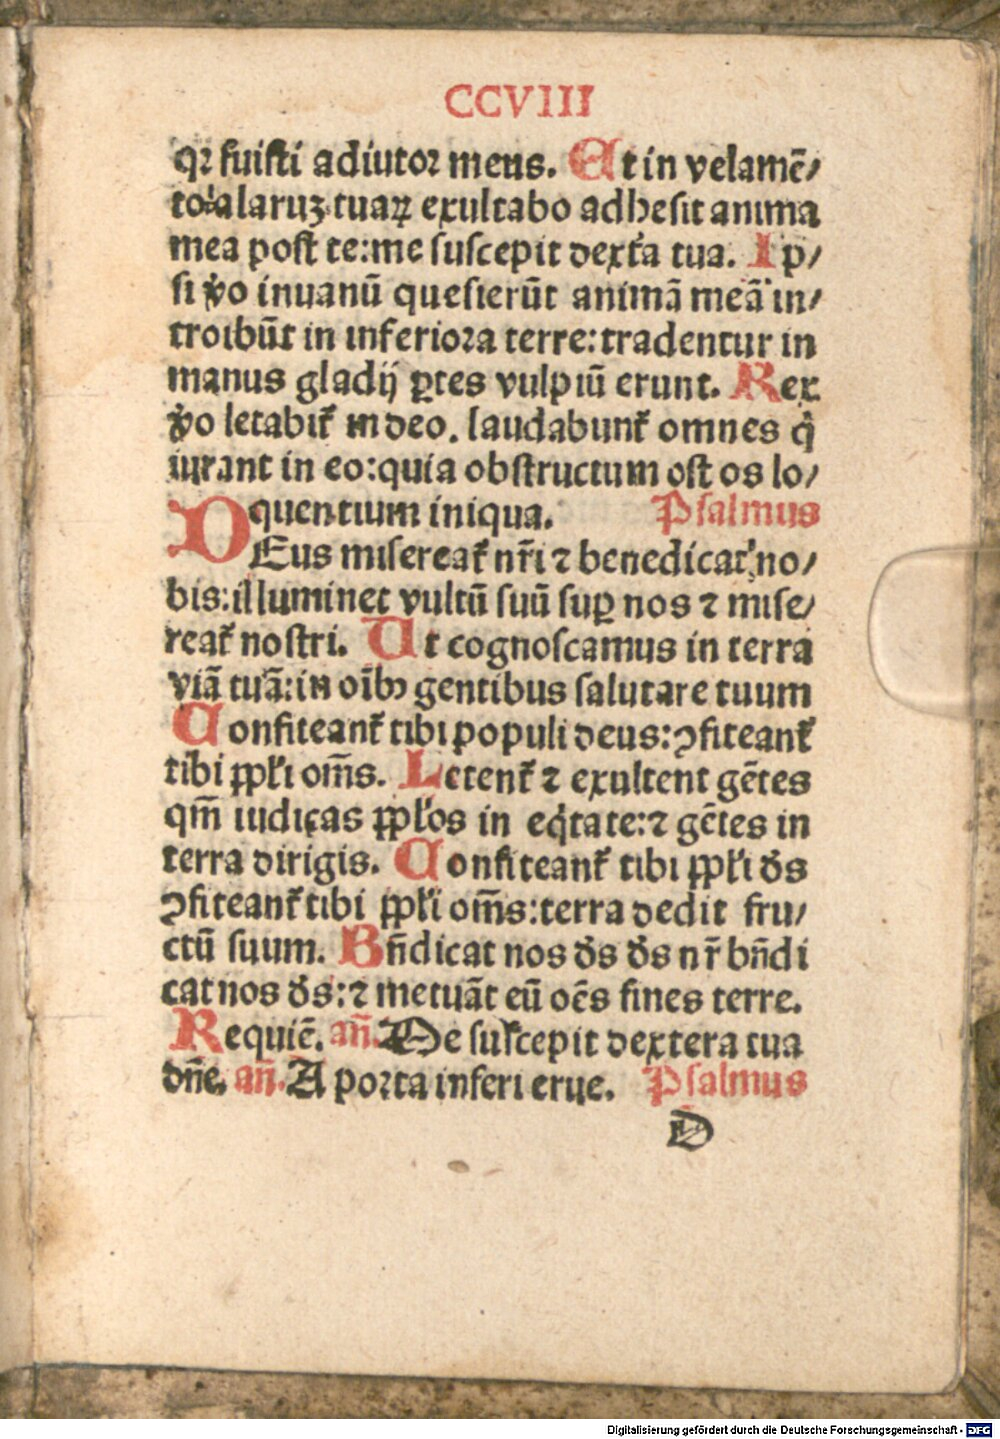 CCVIII
qꝛ fuiſti adiutoꝛ meus. Et in velamē⸗
to alaruꝫ tuaꝝ exultabo adheſit anima
mea poſt te:me ſuſcepit dext̓a tua. Ip⸗
ſi v̓o inuanū queſierūt animā meā in⸗
troibūt in inferioꝛa terre:tradentur in
manus gladij ꝑtes vulpiū erunt. Rex
v̓o letabit̉ in deo. laudabunt̉ omnes q̇
iurant in eo:quia obſtructum oſt os lo⸗
quentium iniqua. Pſalmus
DEus miſereat̉ nr̄i ⁊ benedicat no⸗
bis:illuminet vultū ſuū ſuꝑ nos ⁊ miſe⸗
reat̉ noſtri. Ut cognoſcamus in terra
viā tuā:in oīb⁹ gentibus ſalutare tuum
Confiteant̉ tibi populi deus:ꝯfiteant̉
tibi ppl̓i om̄s. Letent̉ ⁊ exultent gētes
qm̄ iudicas ppl̓os in eq̇tate:⁊ gētes in
terra dirigis. Confiteant̉ tibi ppl̓i d̓s
ꝯfiteant̉ tibi ppl̓i om̄s:terra dedit fru⸗
ctū ſuum. Bn̄dicat nos d̓s d̓s nr̄ bn̄di
cat nos d̓s:⁊ metuāt eū oēs fines terre.
Requiē. an̄. Me ſuſcepit dextera tua
dn̄e. an̄. A poꝛta inferi erue. Pſalmus
D
Digitalisierung gefördert durch die Deutsche Forschungsgemeinschaft - DFG